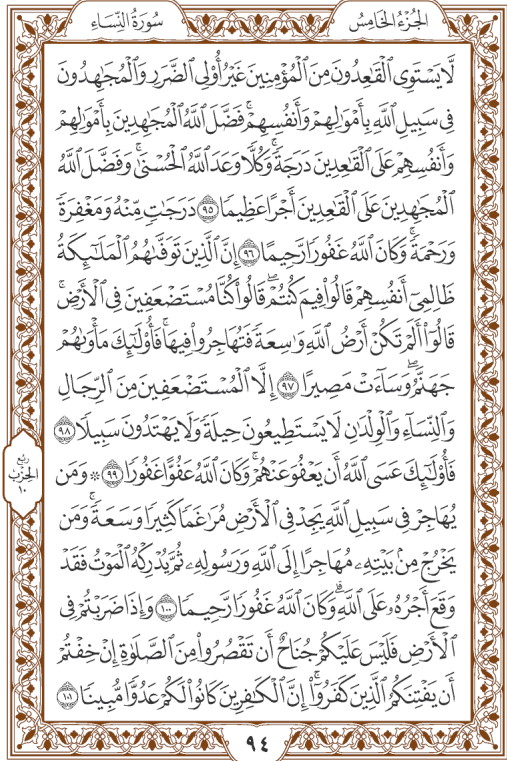 الجُزْءُ الخَامِسُ سُورَةُ النِّسَاءِ
لَّا يَسْتَوِي الْقَٰعِدُونَ مِنَ الْمُؤْمِنِينَ غَيْرُ أُو۟لِي الضَّرَرِ وَالْمُجَٰهِدُونَ
فِي سَبِيلِ اللَّهِ بِأَمْوَٰلِهِمْ وَأَنفُسِهِمْ ۚ فَضَّلَ اللَّهُ الْمُجَٰهِدِينَ بِأَمْوَٰلِهِمْ
وَأَنفُسِهِمْ عَلَى الْقَٰعِدِينَ دَرَجَةً ۚ وَكُلًّا وَعَدَ اللَّهُ الْحُسْنَىٰ ۚ وَفَضَّلَ اللَّهُ
الْمُجَٰهِدِينَ عَلَى الْقَٰعِدِينَ أَجْرًا عَظِيمًا ٩٥ دَرَجَٰتٍ مِّنْهُ وَمَغْفِرَةً
وَرَحْمَةً ۚ وَكَانَ اللَّهُ غَفُورًا رَّحِيمًا ٩٦ إِنَّ الَّذِينَ تَوَفَّىٰهُمُ الْمَلَٰٓئِكَةُ
ظَالِمِي أَنفُسِهِمْ قَالُوا۟ فِيمَ كُنتُمْ ۖ قَالُوا۟ كُنَّا مُسْتَضْعَفِينَ فِي الْأَرْضِ ۚ
قَالُوٓا۟ أَلَمْ تَكُنْ أَرْضُ اللَّهِ وَٰسِعَةً فَتُهَاجِرُوا۟ فِيهَا ۚ فَأُو۟لَٰٓئِكَ مَأْوَىٰهُمْ
جَهَنَّمُ ۖ وَسَآءَتْ مَصِيرًا ٩٧ إِلَّا الْمُسْتَضْعَفِينَ مِنَ الرِّجَالِ
وَالنِّسَآءِ وَالْوِلْدَٰنِ لَا يَسْتَطِيعُونَ حِيلَةً وَلَا يَهْتَدُونَ سَبِيلًا ٩٨
فَأُو۟لَٰٓئِكَ عَسَى اللَّهُ أَن يَعْفُوَ عَنْهُمْ ۚ وَكَانَ اللَّهُ عَفُوًّا غَفُورًا ٩٩ ۞ وَمَن
يُهَاجِرْ فِي سَبِيلِ اللَّهِ يَجِدْ فِي الْأَرْضِ مُرَٰغَمًا كَثِيرًا وَسَعَةً ۚ وَمَن
يَخْرُجْ مِنۢ بَيْتِهِۦ مُهَاجِرًا إِلَى اللَّهِ وَرَسُولِهِۦ ثُمَّ يُدْرِكْهُ الْمَوْتُ فَقَدْ
وَقَعَ أَجْرُهُۥ عَلَى اللَّهِ ۗ وَكَانَ اللَّهُ غَفُورًا رَّحِيمًا ١٠٠ وَإِذَا ضَرَبْتُمْ فِي
الْأَرْضِ فَلَيْسَ عَلَيْكُمْ جُنَاحٌ أَن تَقْصُرُوا۟ مِنَ الصَّلَوٰةِ إِنْ خِفْتُمْ
أَن يَفْتِنَكُمُ الَّذِينَ كَفَرُوٓا۟ ۚ إِنَّ الْكَٰفِرِينَ كَانُوا۟ لَكُمْ عَدُوًّا مُّبِينًا ١٠١
رُبع
الحِزْب
١٠
٩٤